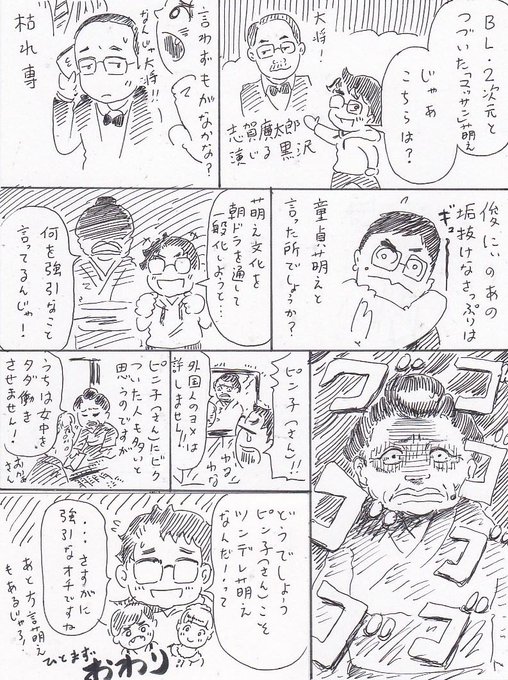 BL・2次元と
つづいた「マッサン」萌え
じゃあ
こちらは?
大将!
志賀廣太郎
演じる黒沢
なんじゃ大将!!
言わずもがなかな?
枯れ専
俊にいのあの
垢抜けなさっぷりは
ギュ
童貞萌えと
言った所でしょうか?
萌え文化を
朝ドラを通して
一般化しようと…
何を強引なこと
言ってるんじゃ!
ゴゴゴゴゴゴ
ピン子(さん)!!
外国人のヨメは
許しません!!
わな
わな
ピン子(さん)にピンと
ついた人も多いと
思うのですが
うちは女中を
タダ働き
させません!
どうでしょう
ピン子(さん)こそ
ツンデレ萌え
なんだ!!って
・・・さすがに
強引なオチですね
あと方言萌え
もあるじゃろ?
ひとまず
おわり